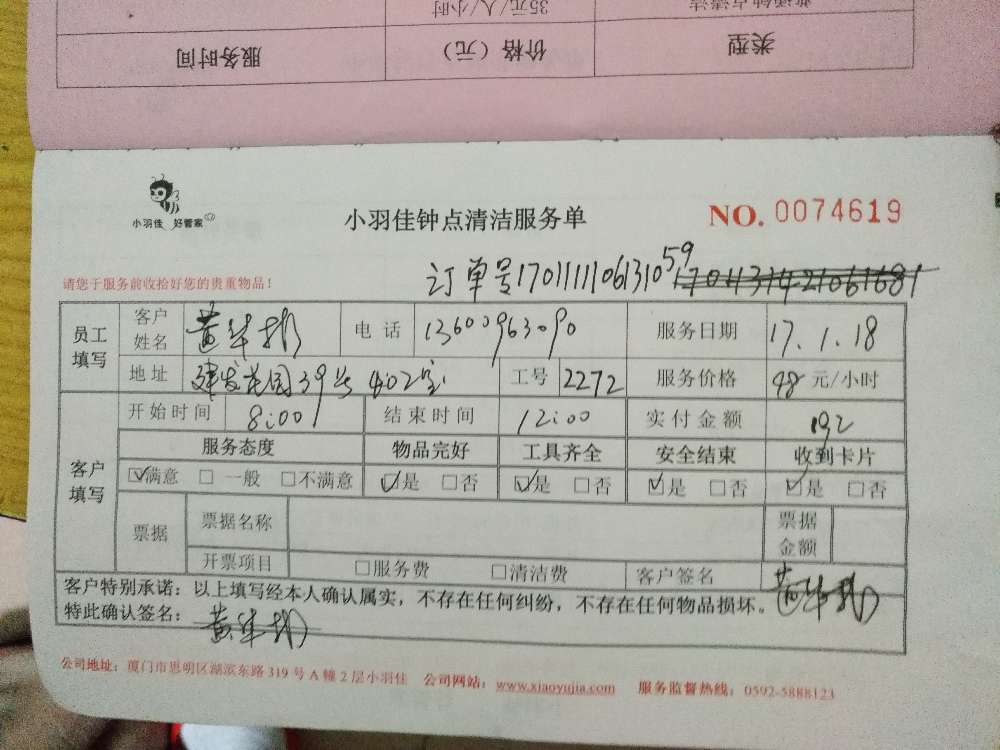 普通钟点清洁 35元/人/小时
类型 价格（元） 服务时间
小羽佳 好管家
小羽佳钟点清洁服务单 NO. 0074619
订单号170111110631059
请您于服务前收拾好您的贵重物品！
员工填写 客户姓名 黄华彬 电话 13600963090 服务日期 17.1.18
地址 建发花园39号402室 工号 2272 服务价格 48元/小时
客户填写 开始时间 8:00 结束时间 12:00 实付金额 192
服务态度 物品完好 工具齐全 安全结束 收到卡片
☑满意 □一般 □不满意 ☑是 □否 ☑是 □否 ☑是 □否 ☑是 □否
票据 票据名称 票据金额
开票项目 □服务费 □清洁费 客户签名 黄华彬
客户特别承诺：以上填写经本人确认属实，不存在任何纠纷，不存在任何物品损坏。
特此确认签名：黄华彬
公司地址：厦门市思明区湖滨东路319号A幢2层小羽佳 公司网站：www.xiaoyujia.com 服务监督热线：0592-5888123